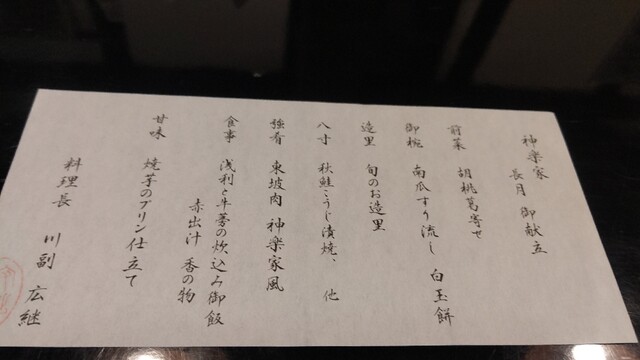 神楽家
長月 御献立
前菜 胡桃葛寄せ
御椀 南瓜すり流し 白玉餅
造里 旬のお造里
八寸 秋鮭こうじ漬焼、他
強肴 東坡肉 神楽家風
食事 浅利と牛蒡の炊込み御飯
赤出汁 香の物
甘味 焼芋のプリン仕立て
料理長 川副 広継